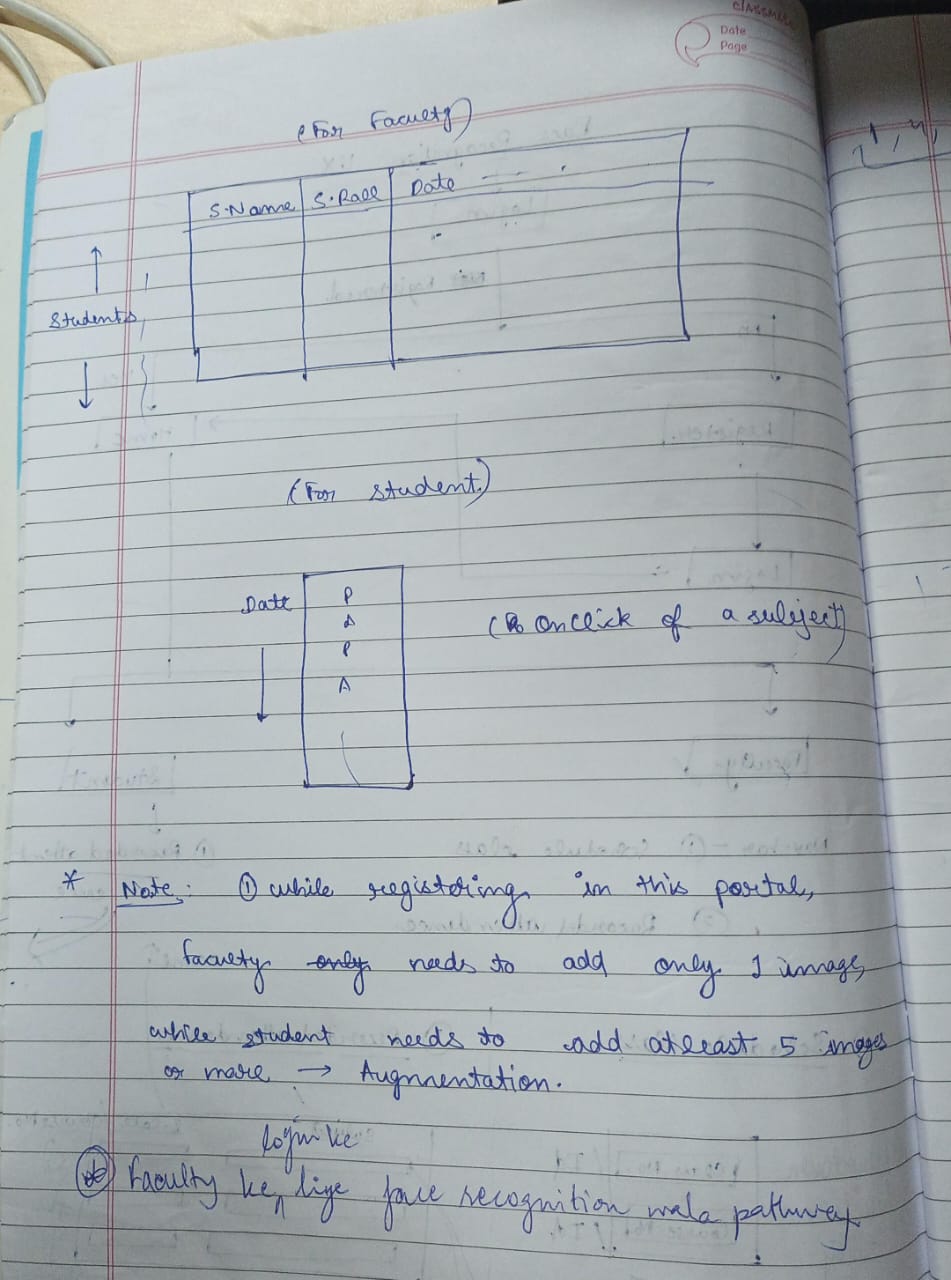 classmate
Date
Page
(For Faculty)
S.Name S.Roll Date
Students
(For student)
Date P
A
P
A
(onclick of a subject)
* Note: ① while registering in this portal,
faculty only needs to add only 1 image,
while student needs to add atleast 5 images
or more → Augmentation.
login ke
Faculty ke liye face recognition wala pathway